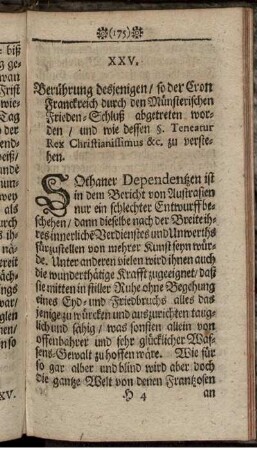 (175)
XXV.
Berührung desjenigen/ so der Cron
Franckreich durch den Münsterischen
Frieden-Schluß abgetreten wor-
den/ und wie dessen §. Teneatur
Rex Christianissimus &c. zu verste-
hen.
SOthaner Dependentzen ist
in dem Bericht von Austrasien
nur ein schlechter Entwurff be-
schehen/ dann dieselbe nach der Breite ih-
res innerliche Verdienstes und Unwerths
fürzustellen von mehrer Kunst seyn wür-
de. Unter anderen vielen wird ihnen auch
die wunderthätige Krafft zugeeignet/ daß
sie mitten in stiller Ruhe ohne Begehung
eines Eyd- und Friedbruchs alles das
jenige zu würcken und auszurichten taug-
lich und fähig/ was sonsten allein von
offenbahrer und sehr glücklicher Waf-
fens-Gewalt zu hoffen wäre. Wie für
so gar alber und blind wird aber doch
die gantze Welt von denen Frantzosen
H 4 an